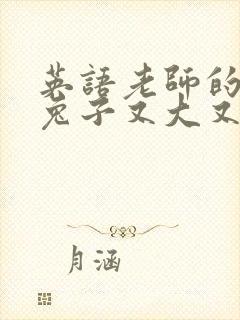 英語老師的
兔子又大又
月涵